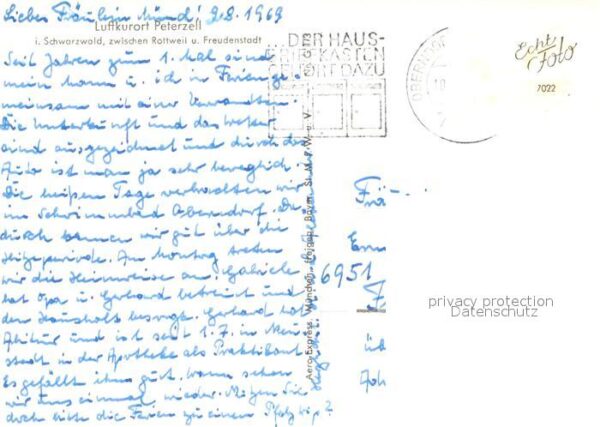 Liebes Fräulein Mündl! 9.8.1969
Luftkurort Peterzell
i. Schwarzwald, zwischen Rottweil u. Freudenstadt
Seit Jahren zum 1. Mal sind
mein Mann u. ich in Ferien ge-
meinsam mit einer Verwandten.
Die Unterkunft und das Wetter
sind ausgezeichnet und durch das
Auto ist man ja sehr beweglich.
Die heißen Tage verbrachten wir
im Schwimmbad Oberndorf. Da-
durch kamen wir gut über die
Hitzeperiode. Am Montag treten
wir die Heimreise an. Gabriele
hat Opa u. Gerhard betreut und
den Haushalt besorgt. Gerhard hat
Abitur und ist seit 1.7. in Neu
stadt in der Apotheke als Praktikant
Es gefällt ihm gut. Wann sehen
wir uns einmal wieder. Nützen Sie
doch bitte die Ferien zu einem Pfalztrip?
DER HAUS-
BRIEFKASTEN
GEHÖRT DAZU
OBERNDORF
Echte
Foto
7022
Aero-Express München
Frä
6951
F
üb
privacy protection
Datenschutz